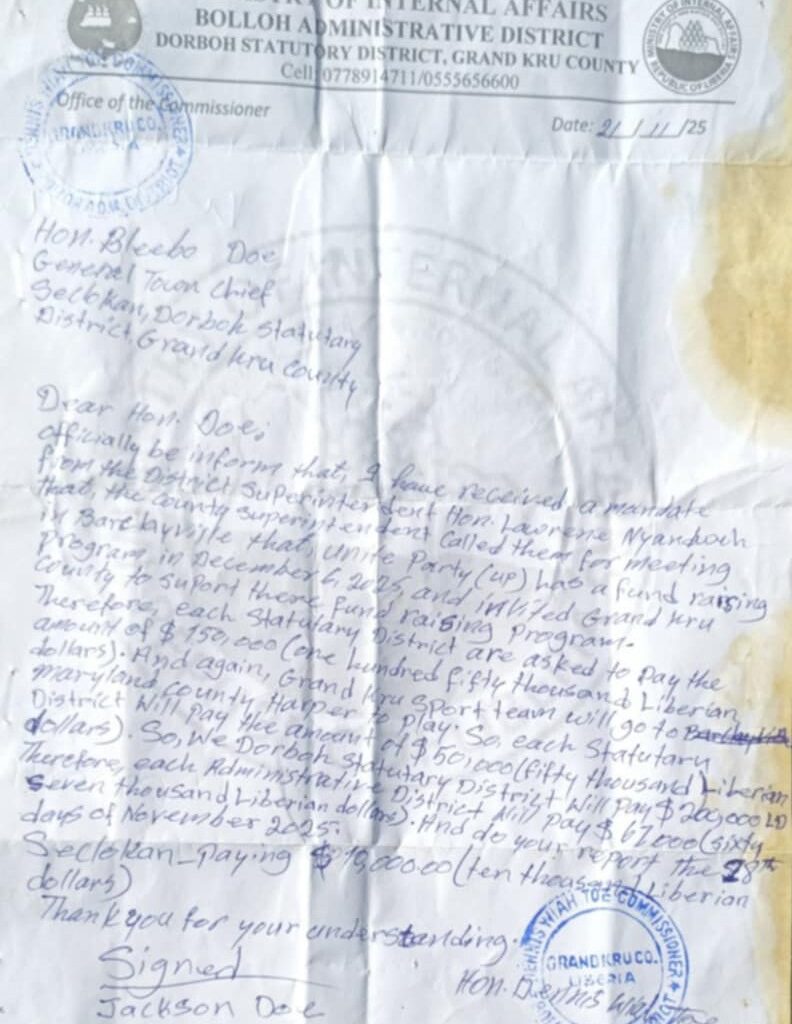 OF INTERNAL AFFAIRS
BOLLOH ADMINISTRATIVE DISTRICT
DORBOH STATUTORY DISTRICT, GRAND KRU COUNTY
Cell: 0778914711/0555656600
MINISTRY OF INTERNAL AFFAIRS
REPUBLIC OF LIBERIA
Office of the Commissioner
Date: 21/11/25
GRAND KRU CO.
Hon. Bleebo Doe
General Town Chief
Seclokan, Dorboh Statutary
District, Grand Kru County
Dear Hon. Doe;
Officially be inform that, I have received a mandate
from the District Superintendent Hon. Lawrene Nyandoch
that, the County Superintendent called them for meeting
in Barclayville that, Unite Party (UP) has a fund raising
program, in December 6, 2025, and invited Grand Kru
County to suport there fund raising Program.
Therefore, each Statutary District are asked to pay the
amount of $150,000 (one hundred fifty thousand Liberian
dollars). And again, Grand Kru sport team will go to
maryland county, Harper to play. So, each Statutary
District will pay the amount of $50,000 (fifty thousand Liberian
dollars). So, we Dorboh Statutary District will pay $200,000 LD
Therefore, each Administrative District will pay $67,000 (sixty
seven thousand Liberian dollars). And do your report the 28th
days of November 2025.
Seclokan - paying $10,000.00 (ten thousand Liberian
dollars)
Thank you for your understanding.
Signed
Jackson Doe
DENNIS WIAH TOE COMMISSIONER
GRAND KRU CO.
LIBERIA
Hon. Dennis Wiah Toe